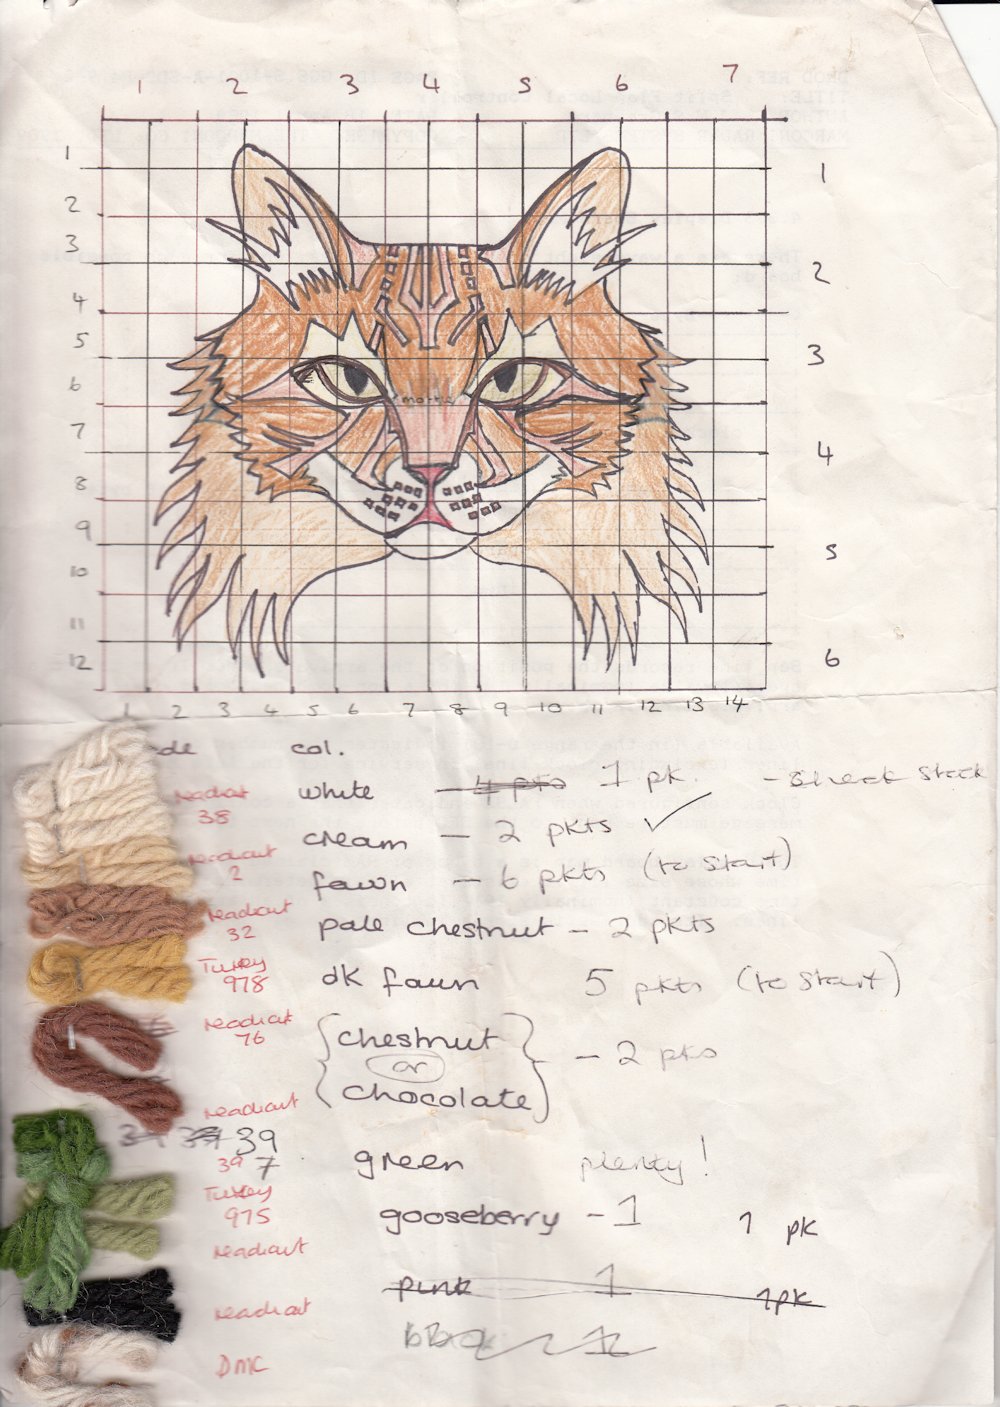 1 2 3 4 5 6 7
1 1
2
3 2
4
5 3
6
mottle
7 4
8
9 5
10
11
12 6
1 2 3 4 5 6 7 8 9 10 11 12 13 14
de col.
readicut 38 white - 4 pkts 1 pk. - check stock
cream - 2 pkts ✓
readicut 2 fawn - 6 pkts (to start)
readicut 32 pale chestnut - 2 pkts
Turkey 978 dk fawn 5 pkts (to start)
readicut 76 { chestnut
(or) } - 2 pkts
readicut chocolate
39
39 7 green plenty!
Turkey 975 gooseberry - 1 1 pk
readicut
pink 1 1pk
readicut black 1
DMC